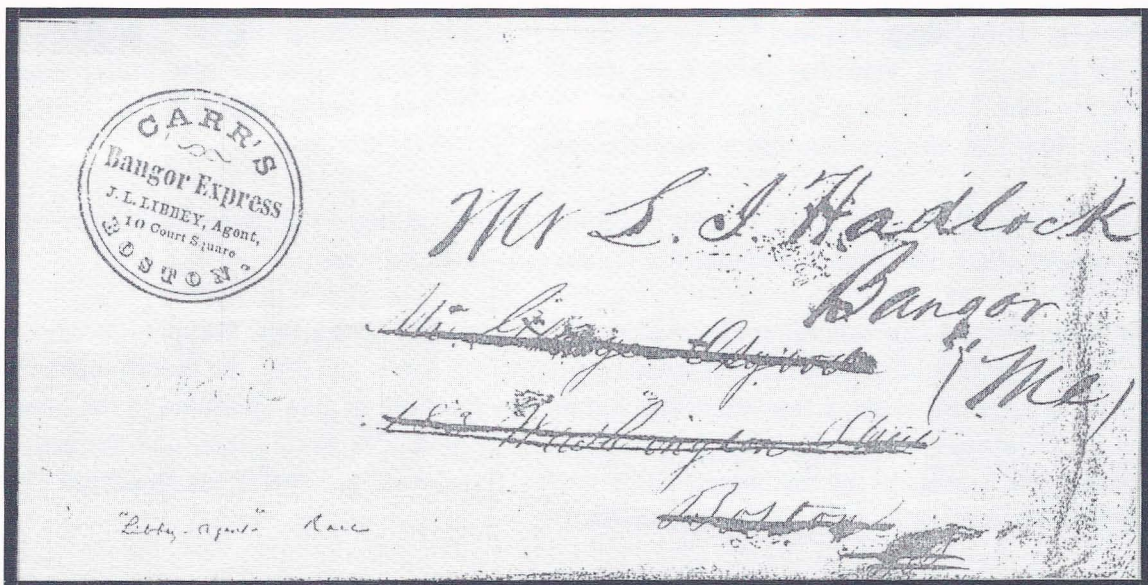 CARR'S
Bangor Express
J. L. LIBBEY, Agent,
10 Court Square
BOSTON.
Mr L. I. Hadlock
Bangor
(Me)
Mr. George
Washington
Boston
"Libbey-Agent" Rare